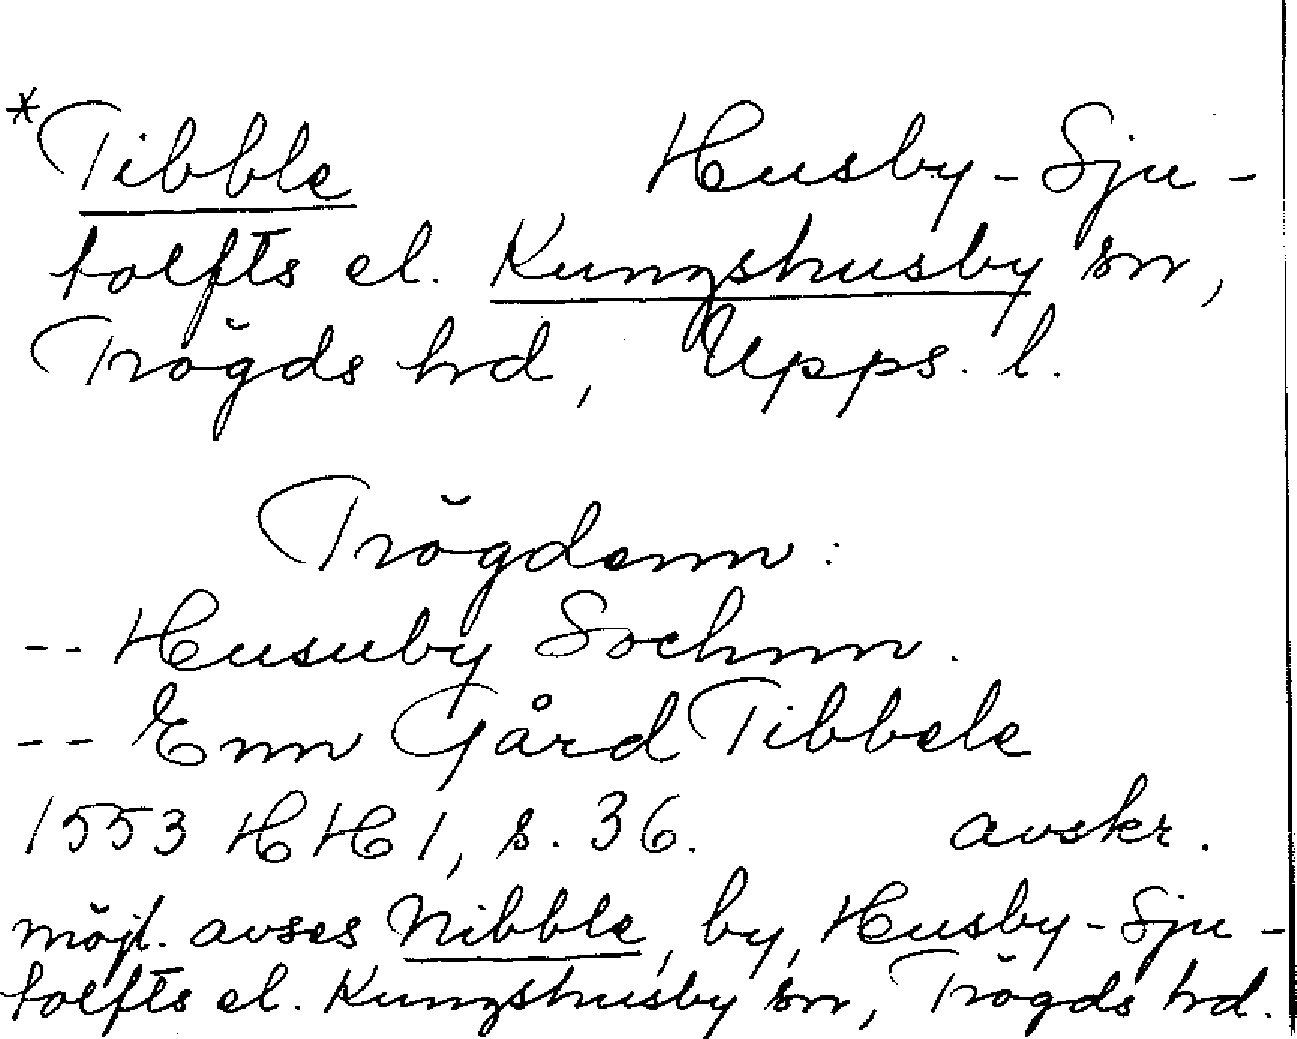 *Tibble Husby-Sju-
tolfts el. Kungshusby sn,
Trögds hd, Upps. l.
Trögdenn:
-- Husuby Sochnn.
-- Enn Gård Tibbele
1553 HH 1, s. 36. avskr.
möjl. avses Nibble, by, Husby-Sju-
tolfts el. Kungshusby sn, Trögds hd.